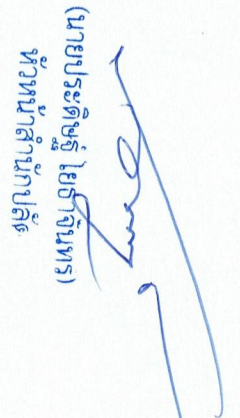 (นายประดิษฐ์ ไยธาจันทร์)
หัวหน้าสำนักปลัด